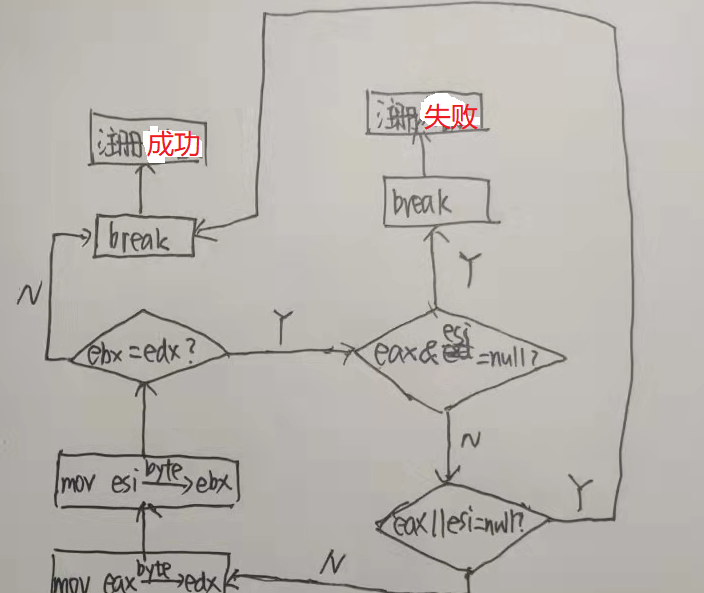 注册失败
注册成功
break
break
N
Y
Y
ebx=edx?
eax&esi=null?
N
mov esi byte→ebx
Y
eax||esi=null?
N
mov eax byte→edx